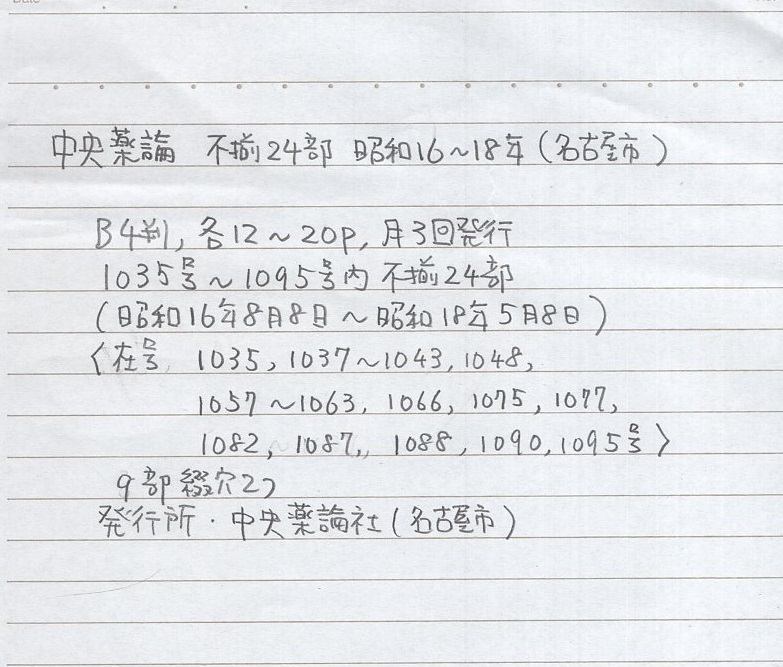 中央薬論 不揃24部 昭和16～18年(名古屋市)
B4判, 各12～20P, 月3回発行
1035号～1095号内 不揃24部
(昭和16年8月8日～昭和18年5月8日)
〈在号 1035, 1037～1043, 1048,
1057～1063, 1066, 1075, 1077,
1082, 1087,, 1088, 1090, 1095号〉
9部綴穴2つ
発行所・中央薬論社(名古屋市)